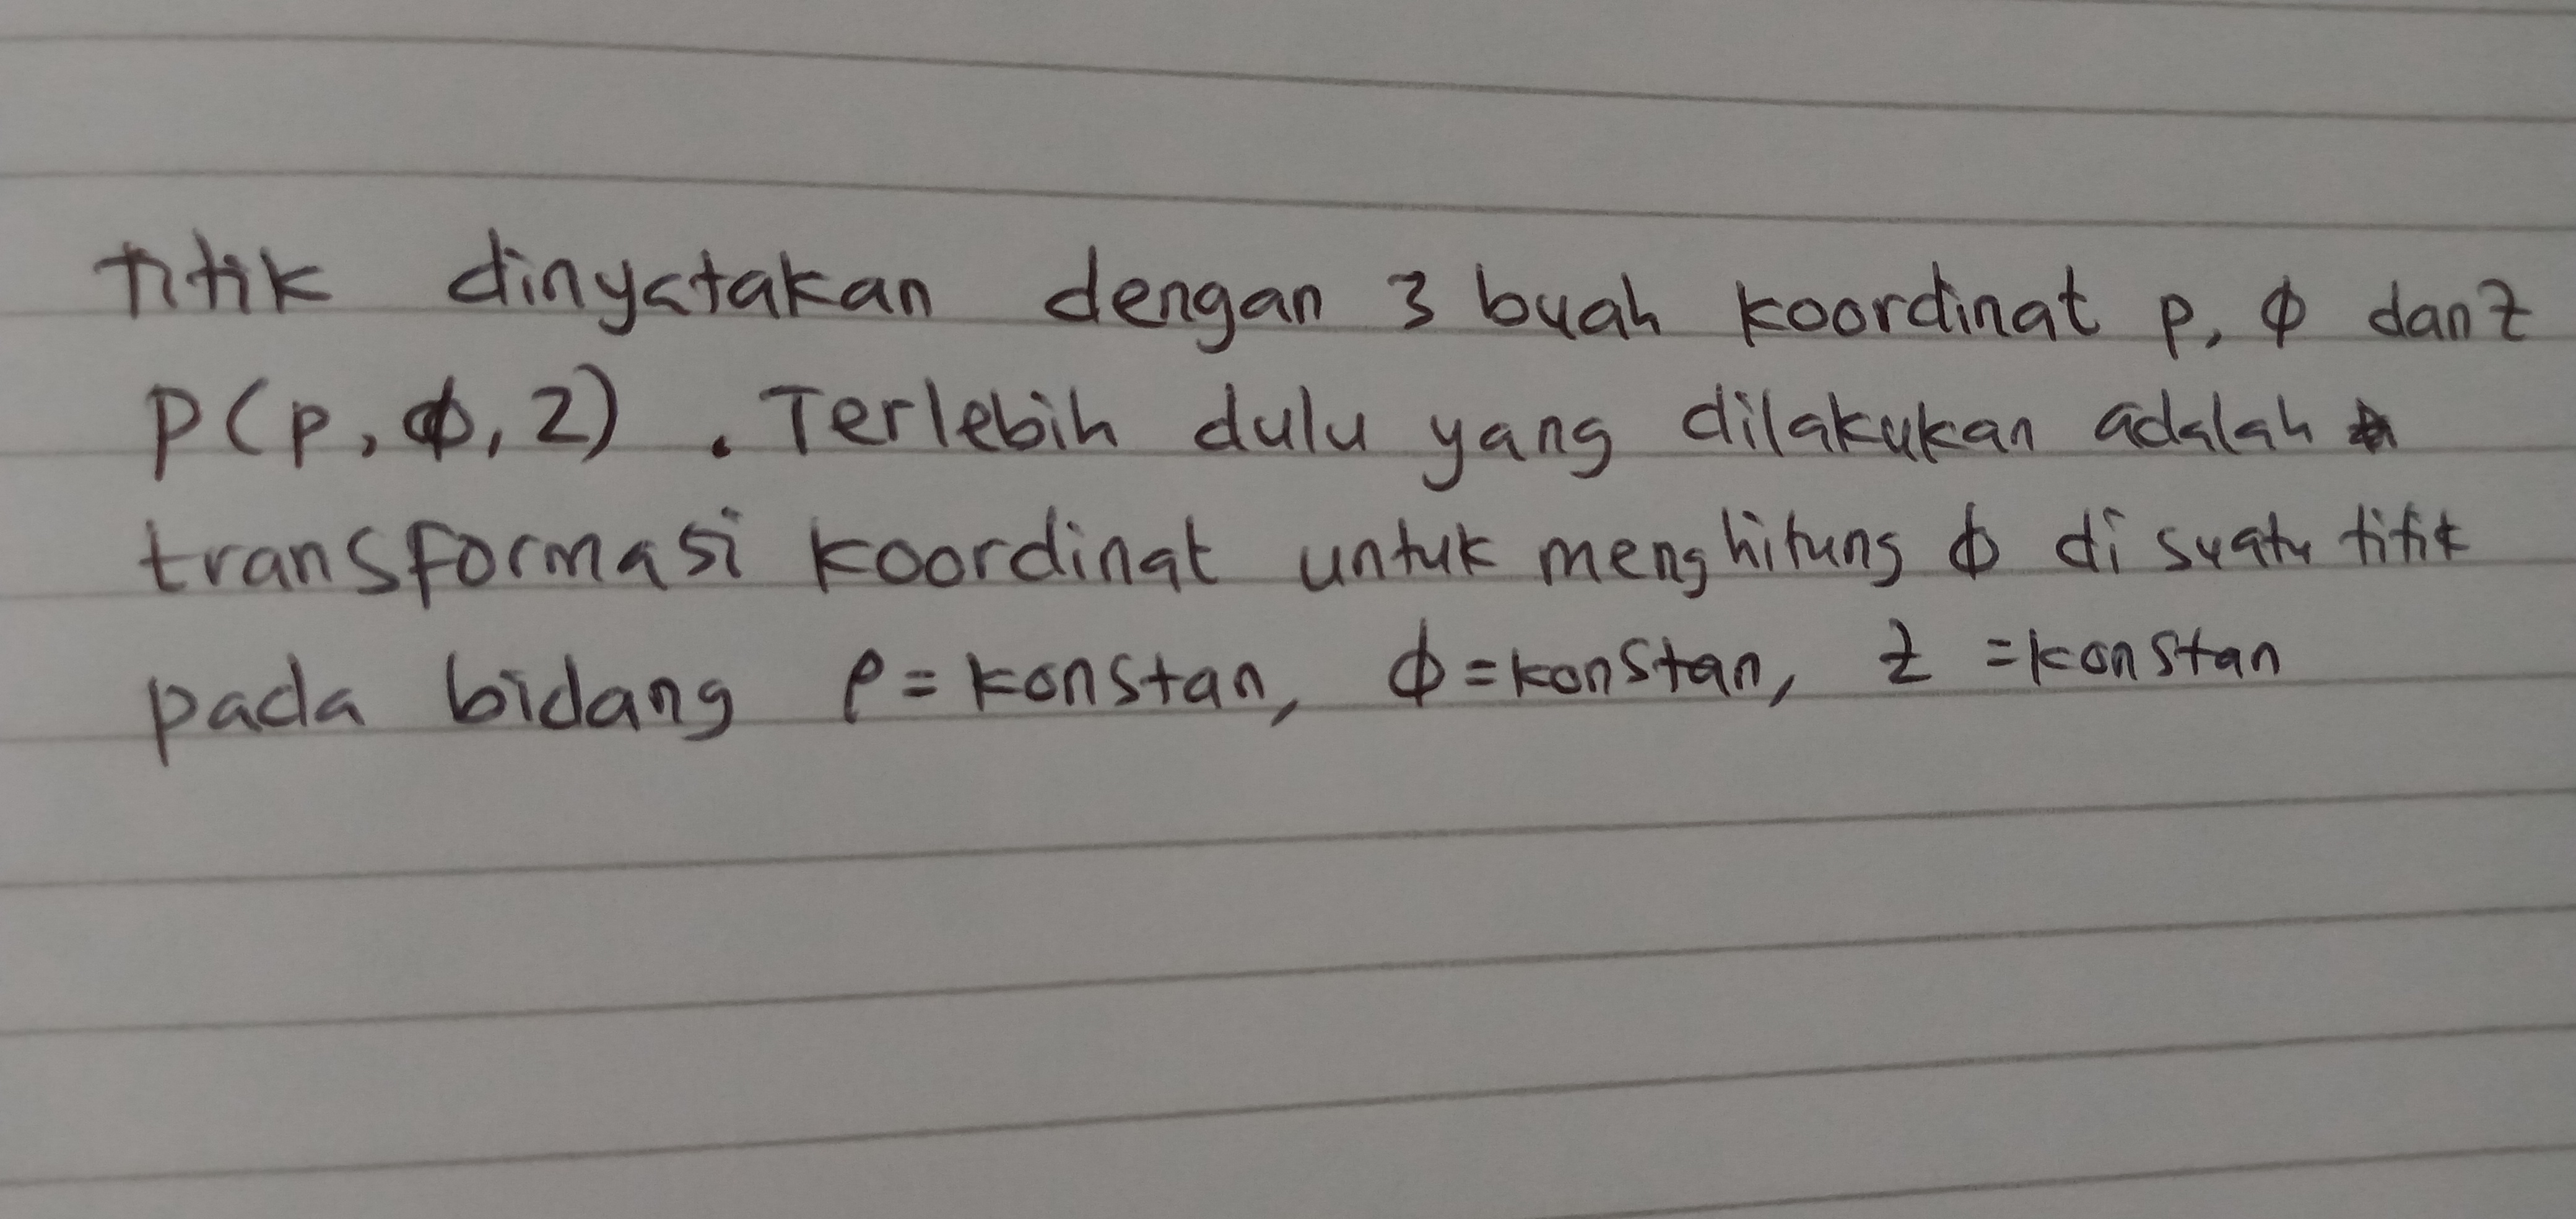 Titik dinyatakan dengan 3 buah koordinat p, φ dan z
P(p, φ, z) . Terlebih dulu yang dilakukan adalah
transformasi koordinat untuk menghitung φ di suatu titik
pada bidang ρ = konstan, φ = konstan, z = konstan